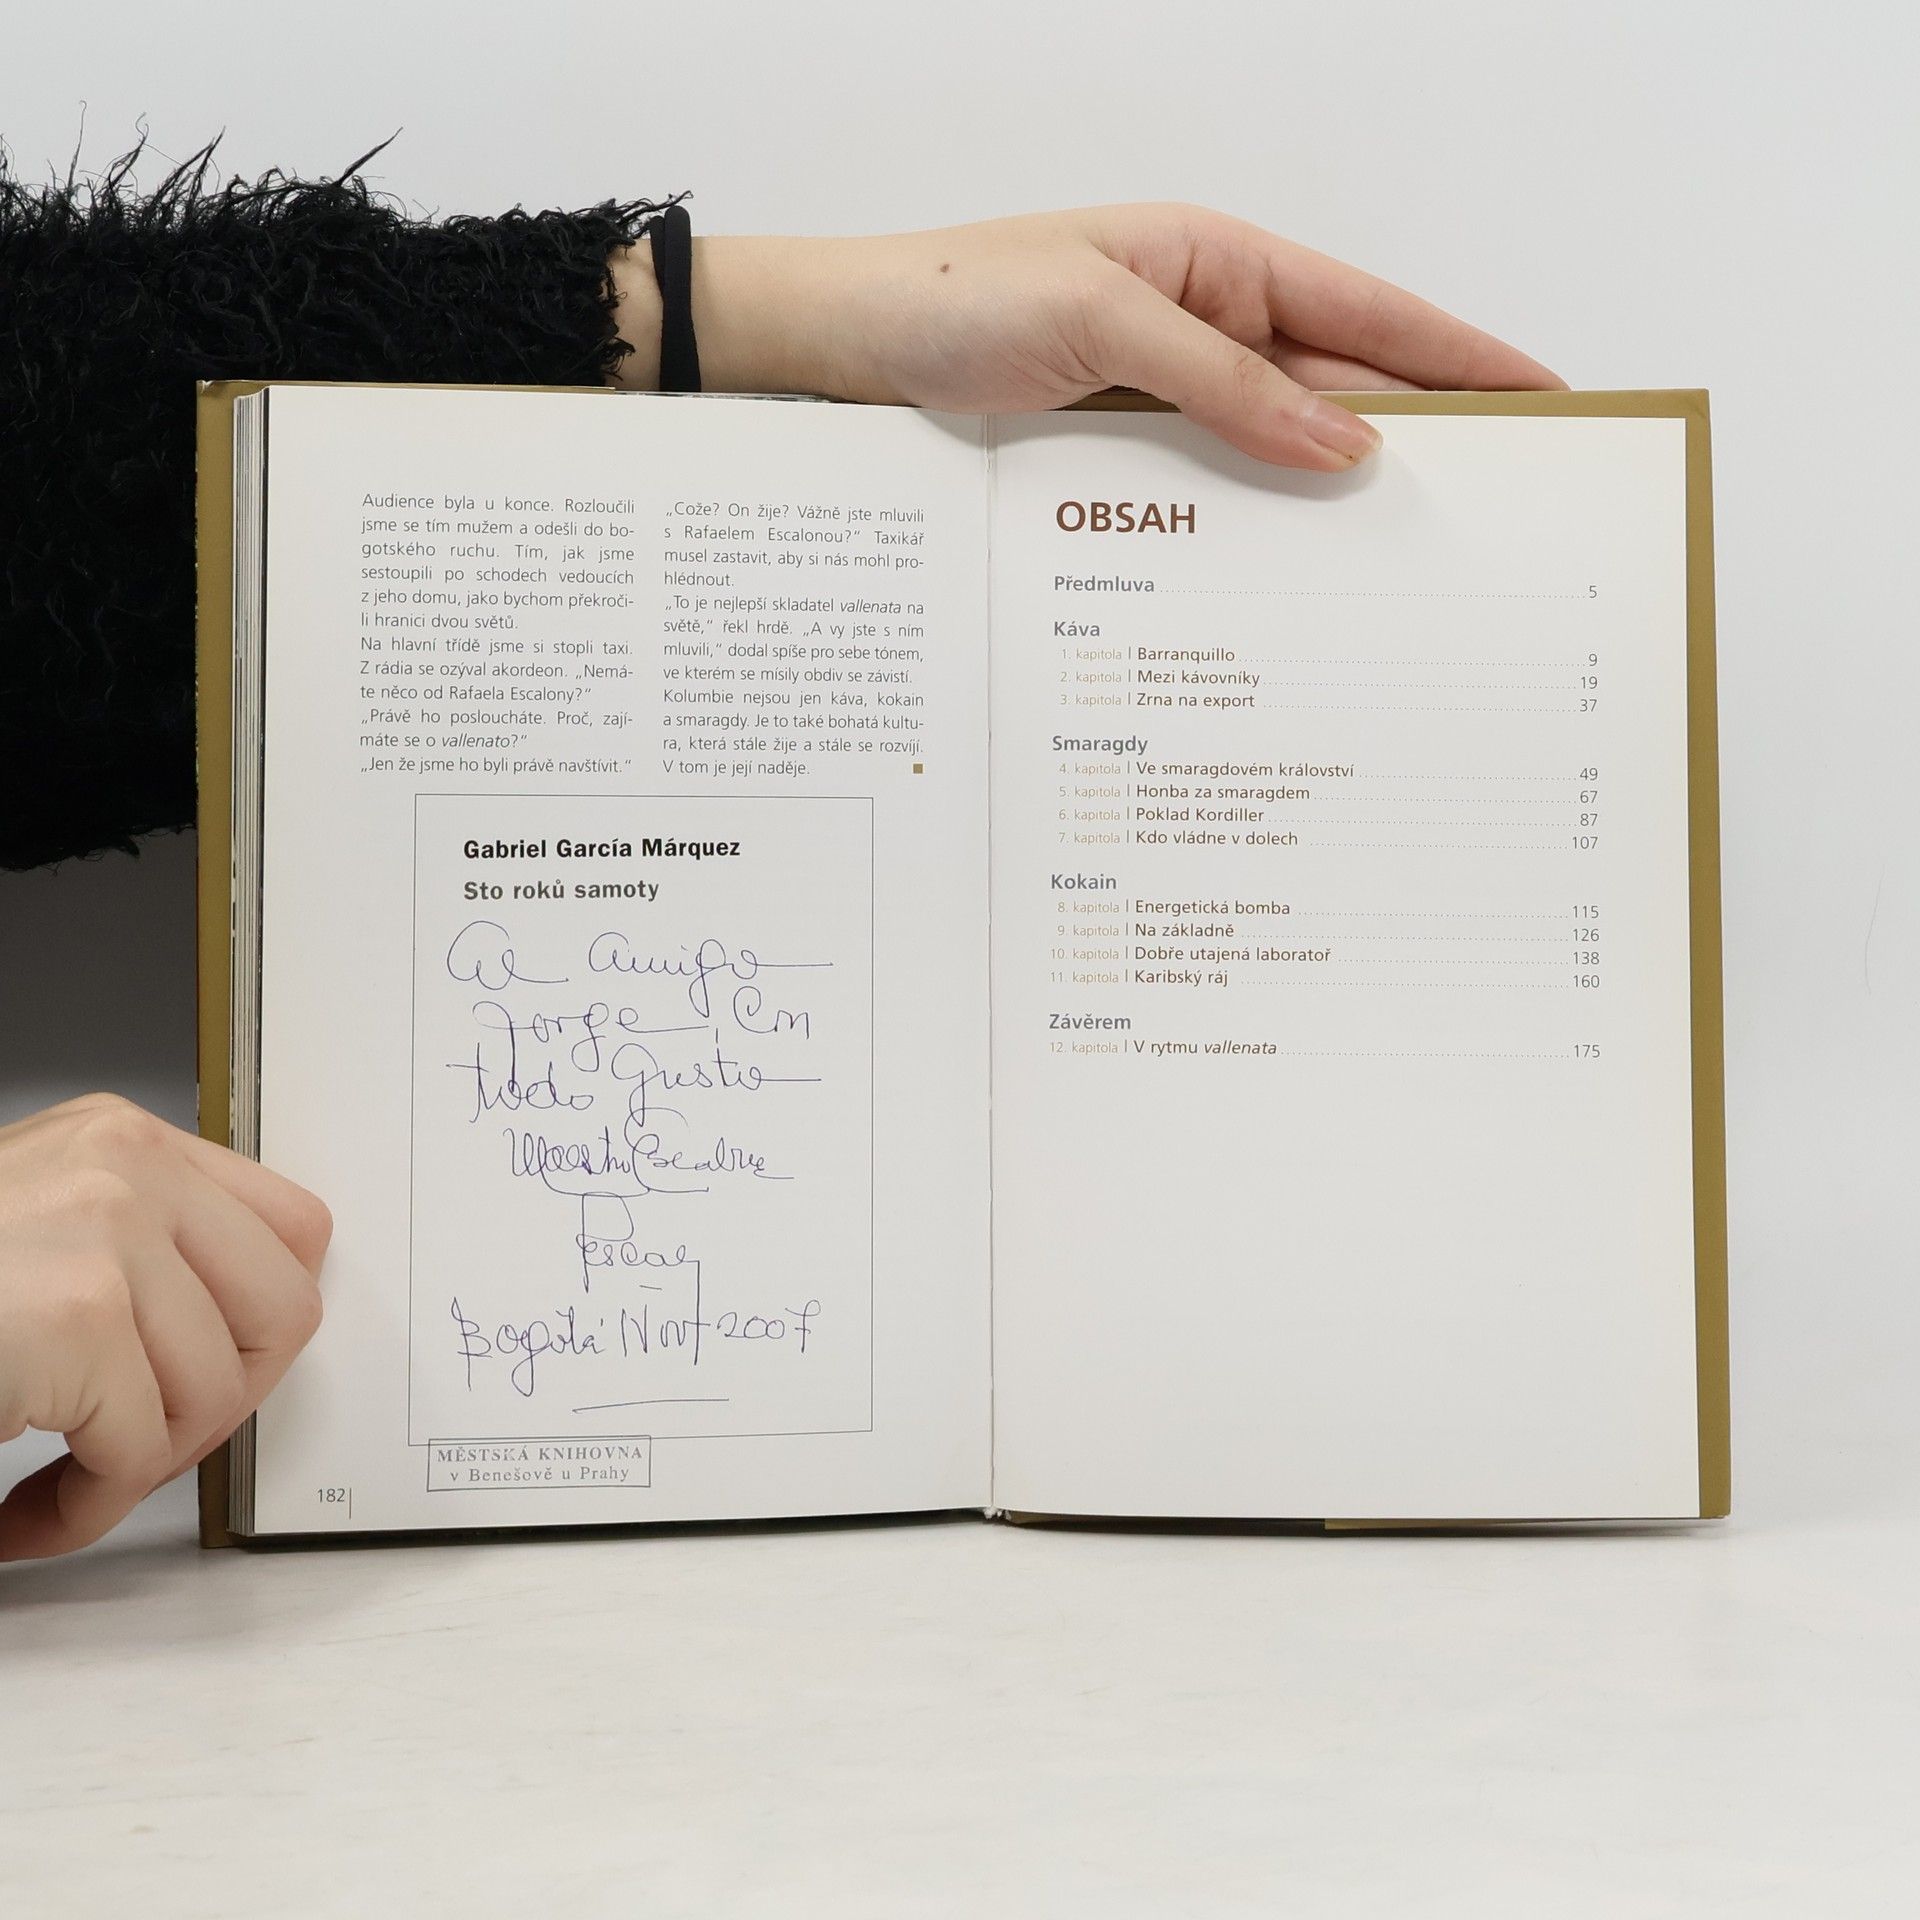 Audience byla u konce. Rozloučili
jsme se tím mužem a odešli do bo-
gotského ruchu. Tím, jak jsme
sestoupili po schodech vedoucích
z jeho domu, jako bychom překroči-
li hranici dvou světů.
Na hlavní třídě jsme si stopli taxi.
Z rádia se ozýval akordeon. „Nemá-
te něco od Rafaela Escalony?“
„Právě ho posloucháte. Proč, zají-
máte se o vallenato?“
„Jen že jsme ho byli právě navštívit.“
„Cože? On žije? Vážně jste mluvili
s Rafaelem Escalonou?“ Taxikář
musel zastavit, aby si nás mohl pro-
hlédnout.
„To je nejlepší skladatel vallenata na
světě,“ řekl hrdě. „A vy jste s ním
mluvili,“ dodal spíše pro sebe tónem,
ve kterém se mísily obdiv se závistí.
Kolumbie nejsou jen káva, kokain
a smaragdy. Je to také bohatá kultu-
ra, která stále žije a stále se rozvíjí.
V tom je její naděje.
Gabriel García Márquez
Sto roků samoty
Al Amigo
Jorge, Con
todo Gusto
Maestro
Bogotá Nov 2007
MĚSTSKÁ KNIHOVNA
v Benešově u Prahy
182
OBSAH
Předmluva 5
Káva
1. kapitola | Barranquillo 9
2. kapitola | Mezi kávovníky 19
3. kapitola | Zrna na export 37
Smaragdy
4. kapitola | Ve smaragdovém království 49
5. kapitola | Honba za smaragdem 67
6. kapitola | Poklad Kordiller 87
7. kapitola | Kdo vládne v dolech 107
Kokain
8. kapitola | Energetická bomba 115
9. kapitola | Na základně 126
10. kapitola | Dobře utajená laboratoř 138
11. kapitola | Karibský ráj 160
Závěrem
12. kapitola | V rytmu vallenata 175